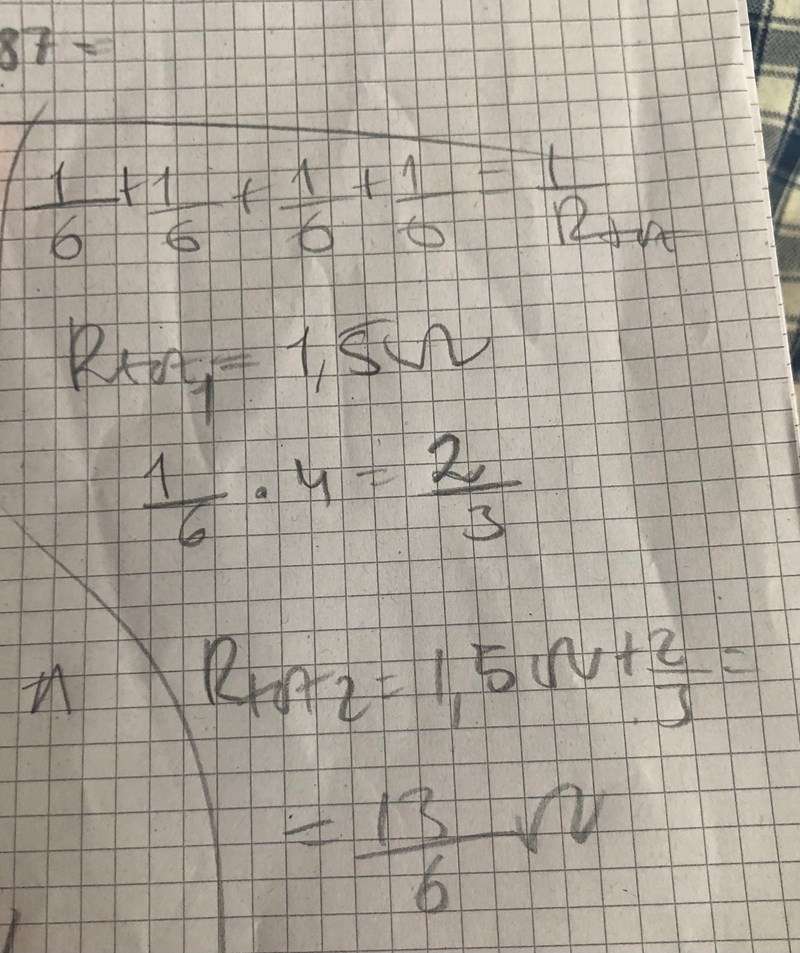 87 =
1/6 + 1/6 + 1/6 + 1/6 = 1/Rtot
Rtot1 = 1,5 Ω
1/6 · 4 = 2/3
Rtot2 = 1,5 Ω + 2/3 =
= 13/6 Ω